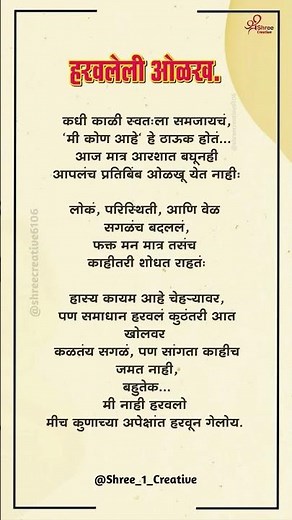 Shree
Creative
हरवलेली ओळख.
कधी काळी स्वतःला समजायचं,
‘मी कोण आहे’ हे ठाऊक होतं...
आज मात्र आरशात बघूनही
आपलंच प्रतिबिंब ओळखू येत नाहीः
लोकं, परिस्थिती, आणि वेळ
सगळंच बदललं,
फक्त मन मात्र तसंच
काहीतरी शोधत राहतंः
हास्य कायम आहे चेहऱ्यावर,
पण समाधान हरवलं कुठंतरी आत
खोलवर
कळतंय सगळं, पण सांगता काहीच
जमत नाही,
बहुतेक...
मी नाही हरवलो
मीच कुणाच्या अपेक्षांत हरवून गेलोय.
@shreecreative6106
@Shree_1_Creative